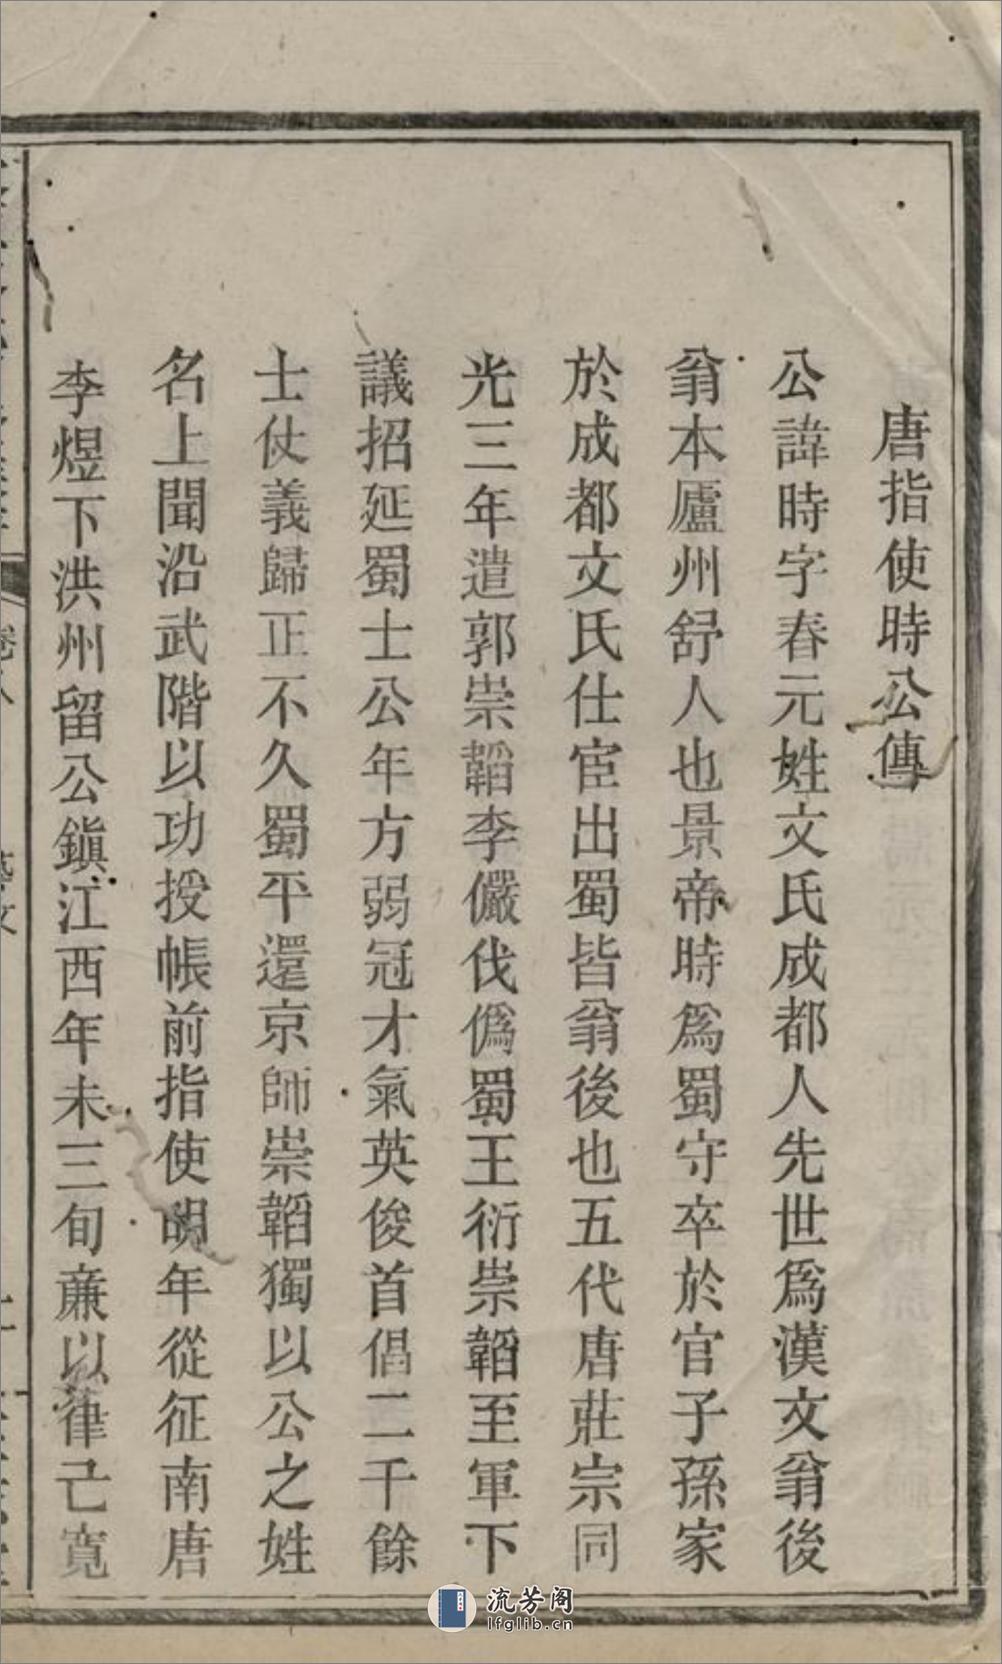 唐指使時公傳
公諱時字春元姓文氏成都人先世爲漢文翁後
翁本廬州舒人也景帝時爲蜀守卒於官子孫家
於成都文氏仕宦出蜀皆翁後也五代唐莊宗同
光三年遣郭崇韜李儼伐僞蜀王衍崇韜至軍下
議招延蜀士公年方弱冠才氣英俊首倡二千餘
士仗義歸正不久蜀平還京師崇韜獨以公之姓
名上聞沿武階以功授帳前指使明年從征南唐
李煜下洪州留公鎭江西年未三旬亷以律己寬
卷八
藝文
流芳阁
lfglib.cn